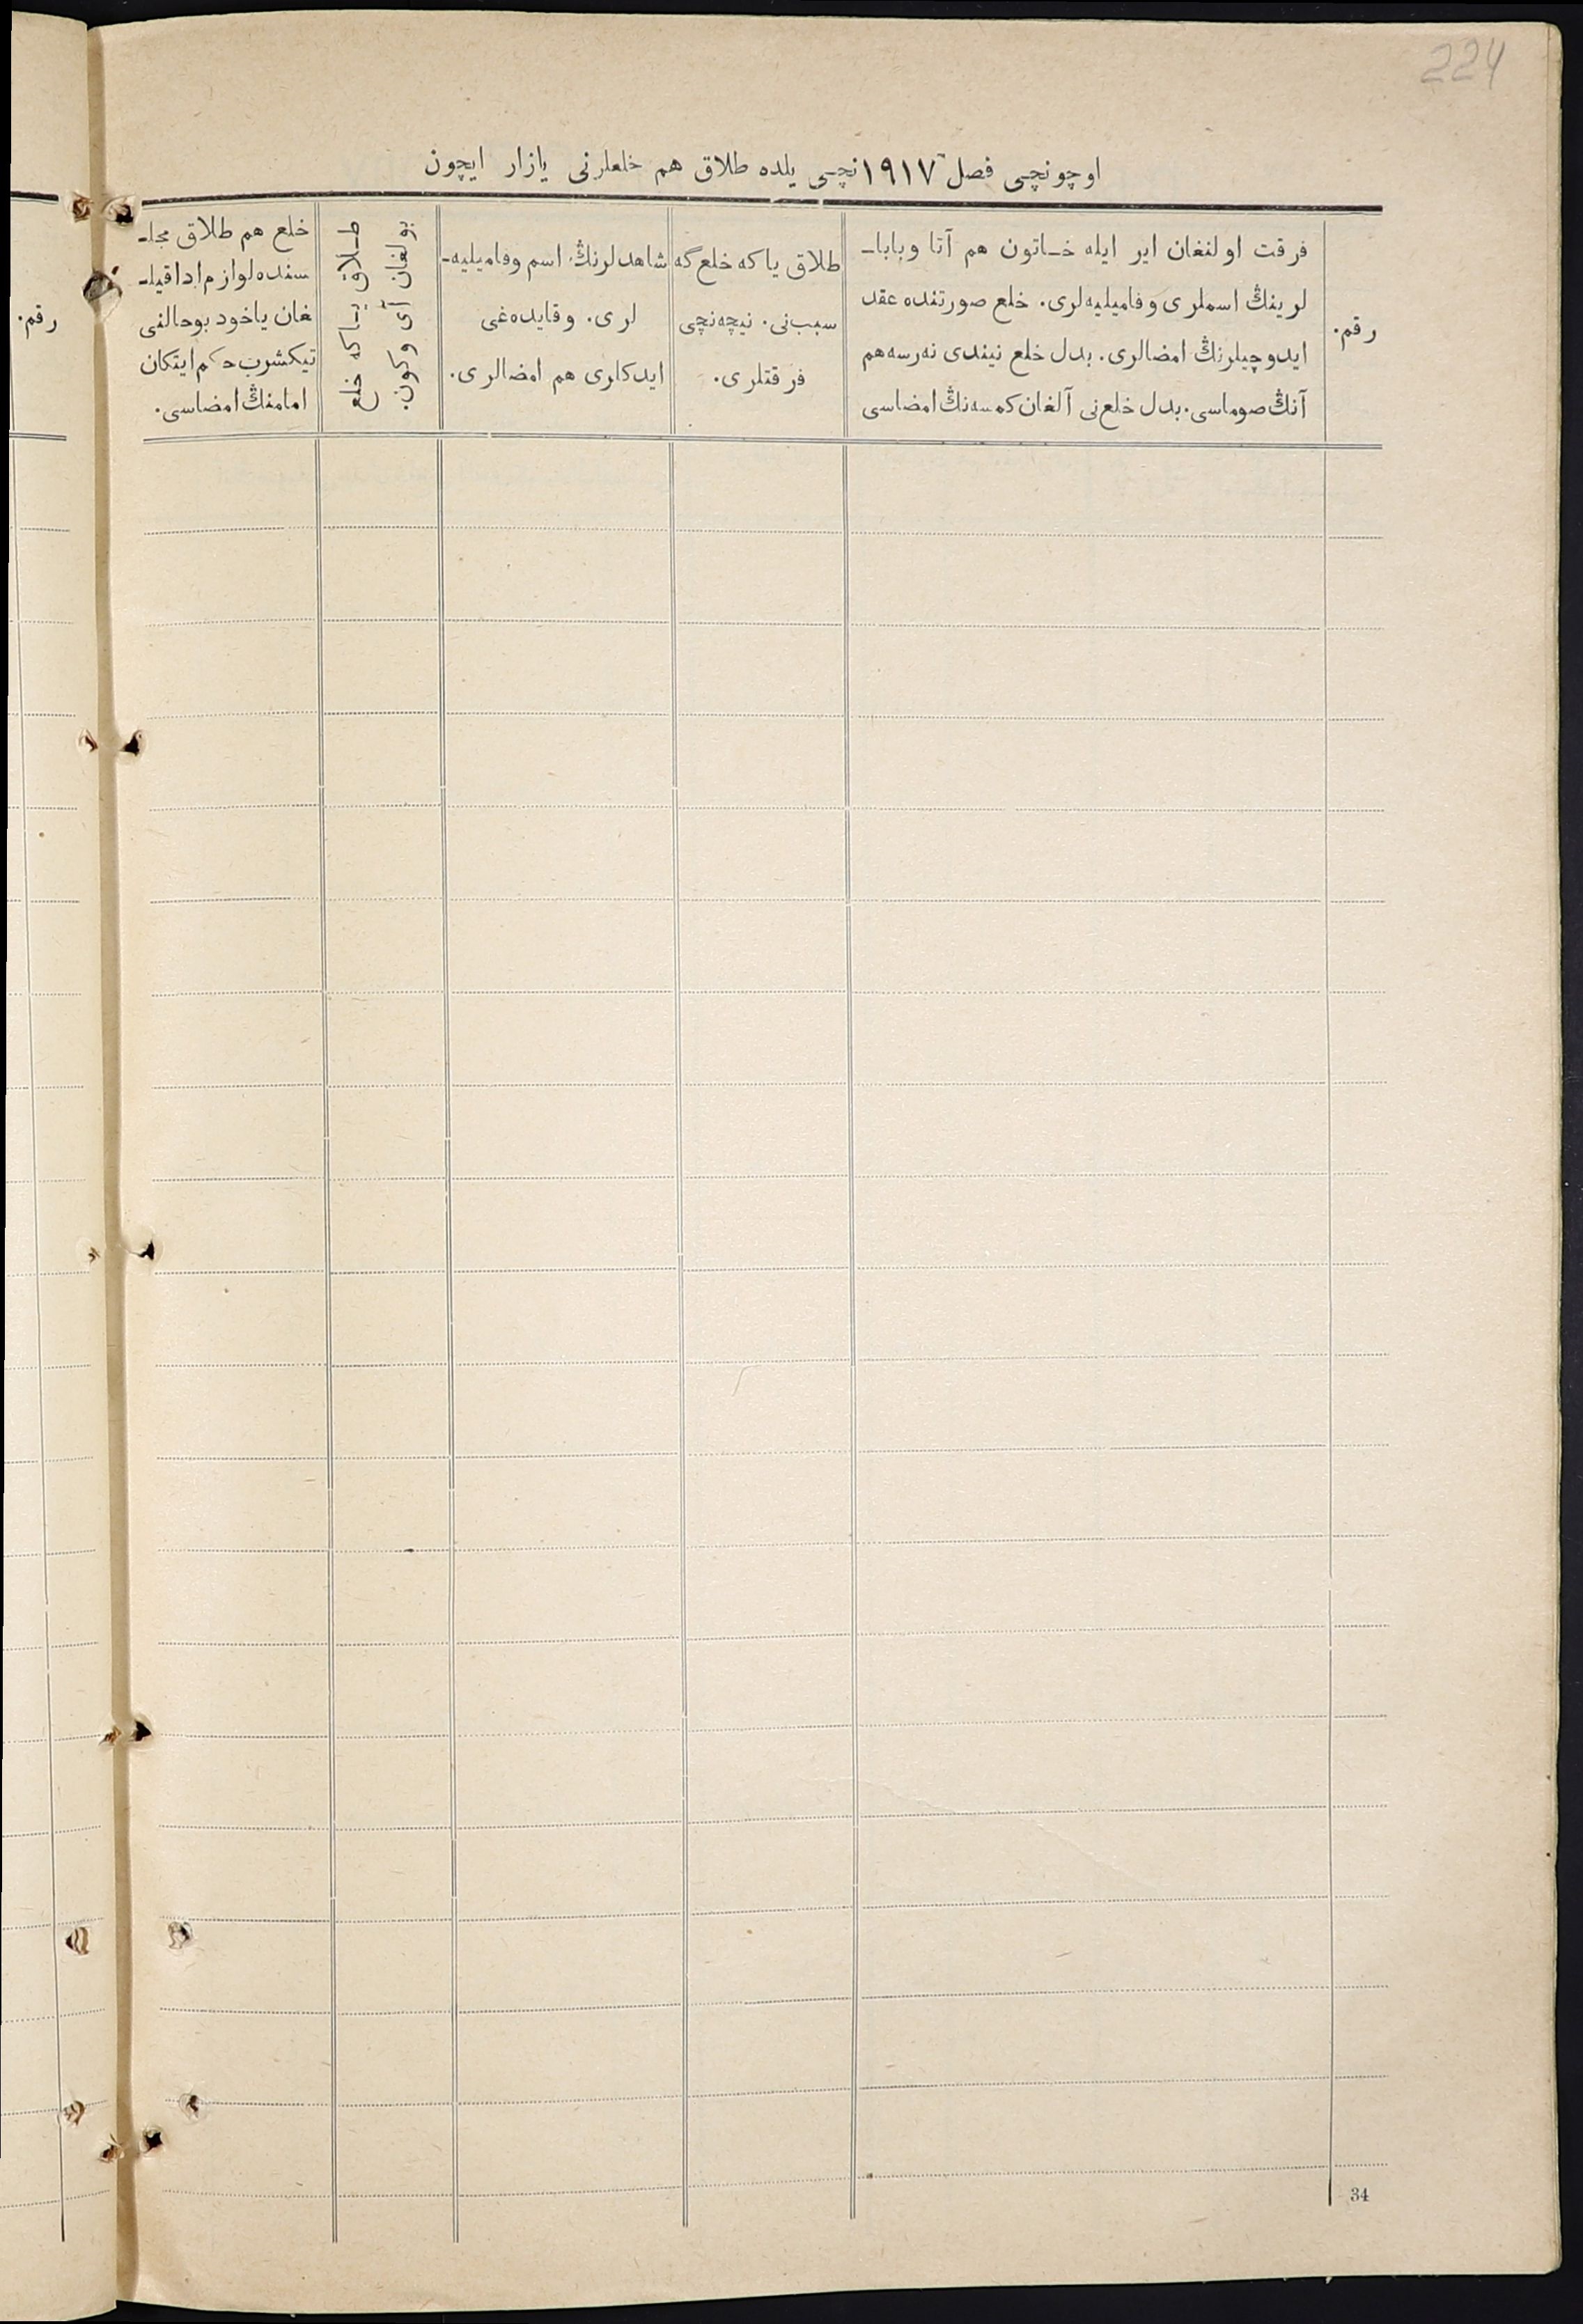 224
اوچونچی فصل ١٩١٧نچی يلده طلاق هم خلعلرنی يازار ايچون
رقم.
فرقت اولنغان اير ايله خـاتون هم آتا وبابا-
لرينڭ اسملری وفاميليه‌لری. خلع صورتنده عقد
ايدوچيلرنڭ امضالری. بدل خلع نيندی نه‌رسه هم
آنڭ صوماسی. بدل خلع‌نی آلغان كمسه‌نڭ امضاسی
طلاق ياكه خلع گه
سبب‌نی. نيچه‌نچی
فرقتلری.
شاهدلرنڭ اسم وفاميليه-
لری. وقايده‌غی
ايدكلری هم امضالری.
طـلاق يـاكه خلع
بولغان آی وكون.
خلع هم طلاق مجلـ
سنده لوازم ادا قيلـ
غان ياخود بوحالنی
تيكشرب حكم ايتكان
امامنڭ امضاسی.
رقم.
34